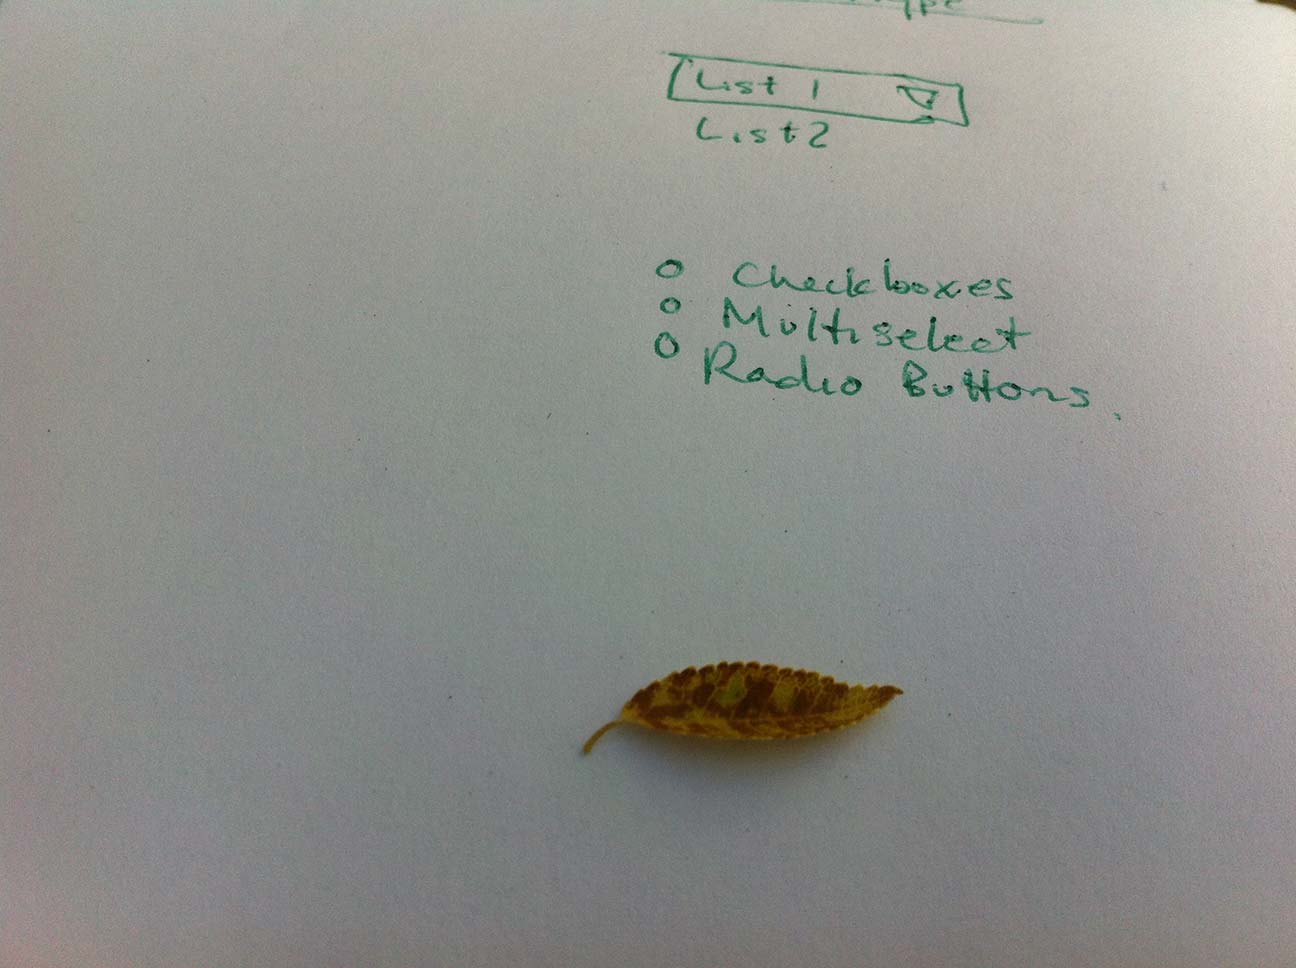 List 1
List 2
Checkboxes
Multiselect
Radio Buttons.